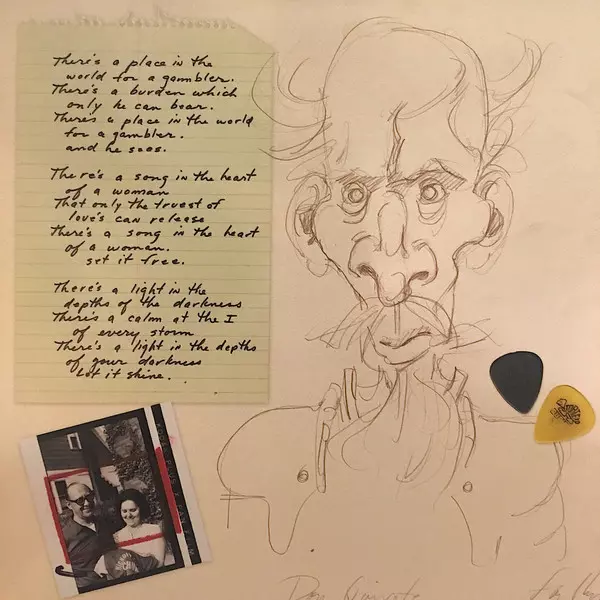 There's a place in the
world for a gambler.
There's a burden which
only he can bear.
There's a place in the world
for a gambler.
and he sees.
There's a song in the heart
of a woman
That only the truest of
love's can release
There's a song in the heart
of a woman.
set it free.
There's a light in the
depths of the darkness
There's a calm at the I
of every storm
There's a light in the depths
of your darkness
Let it shine.
Don Quixote